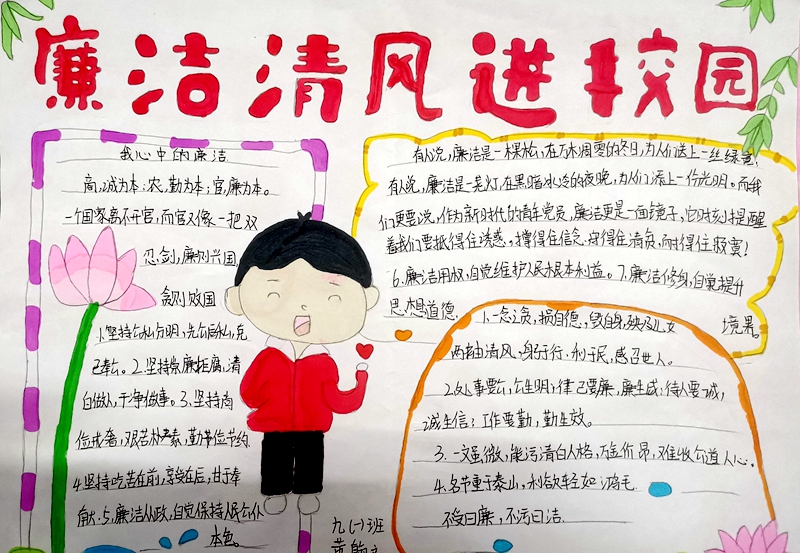 廉洁清风进校园
我心中的廉洁
商,诚为本:农,勤为本:官,廉为本。
一个国家离不开官,而官又像一把双
刃剑,廉则兴国,
贪则败国
1.坚持公私分明,先公后私,克
己奉公。2.坚持崇廉拒腐,清
白做人,干净做事。3.坚持尚
俭戒奢,艰苦朴素,勤俭节约.
4.坚持吃苦在前,享受在后,甘于奉
献:5.廉洁从政,自觉保持人民公仆
本色。
有人说,廉洁是一棵松,在万木凋零的冬日,为人们送上一丝绿意.
有人说,廉洁是一晃灯,在黑暗冰冷的夜晚,为人们添上一份光明。而我
们更要说,作为新时代的青年党员,廉洁更是一面镜子,它时刻提醒
着我们要抵得住诱惑,撑得住信念.守得住清贫,耐得住寂寞!
6.廉洁用权,自觉维护人民根本利益。7.廉洁修身,自觉提升
思想道德
境界。
1.一念之贪,损自德,毁自身,殃及儿女
两袖清风,身于行.利于民,感召世人。
2.处事要公,公生明;律己要廉,廉生威;待人要诚,
诚生信;工作要勤,勤生效。
3.一文虽微,能污清白人格,万金价昂,难收公道人心。
4.名节重于泰山,利欲轻如鸿毛
不受曰廉,不污曰洁.
九(一)班